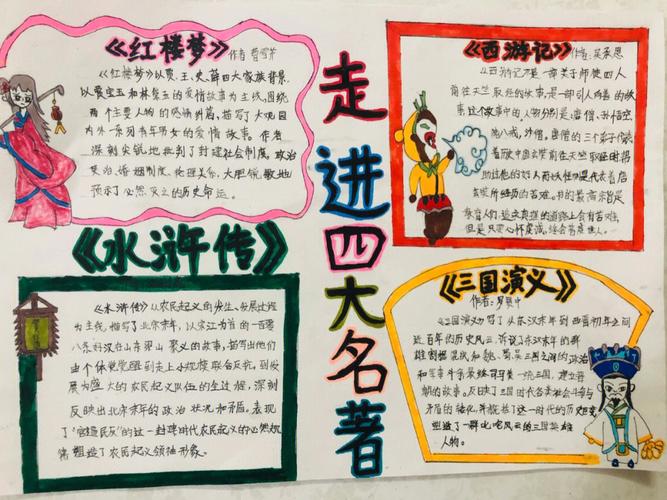 《红楼梦》作者曹雪芹
《红楼梦》以贾、王、史、薛四大家族背景,
以贾宝玉和林黛玉的爱情故事为主线,围绕
两个主要人物的感情纠葛,描写了大观园
内外一系列青年男女的爱情故事。作者
深刻尖锐地批判了封建社会制度,政治
统治,婚姻制度,伦理关系,大胆
预示了必然灭亡的历史命运。
走进四大名著
《西游记》作者:吴承恩
《西游记》是一部关于师徒四人
前往天竺取经的故事,是一部引人
事这个故事中的人物分别是:唐僧、孙悟空、
猪八戒,沙僧,唐僧的三个弟子代
前往天竺取
的苦难。
道路上会有苦难
但是只要心怀虔诚,
《水浒传》
《水浒传》以农民起义的发生、发展过程
为主线,描写了北宋末年,以宋江为首的一百零
八条好汉在山东梁山聚义的故事,描写出他们
由个体觉醒到走上小规模联合反抗,到发
展为盛大的农民起义队伍的全过程,深刻
反映出北宋末年的政治状况和矛盾。表现
了“官逼民反”的这一封建时代农民起义的必然规
塑造了农民起义领袖形象。
《三国演义》
作者:罗贯中
《三国演义》写了从东汉末年到西晋初年之间
近百年的历史风云,诉说了东汉末年的群
雄割据混战和魏、蜀、吴三国之间的政治
和军事斗争最终司马炎一统三国,建立晋
朝的故事。反映了三国时代各类社会斗争与
矛盾的转化,并概括了这一时代的历史巨变
塑造了一群叱咤风云的三国英雄
人物。